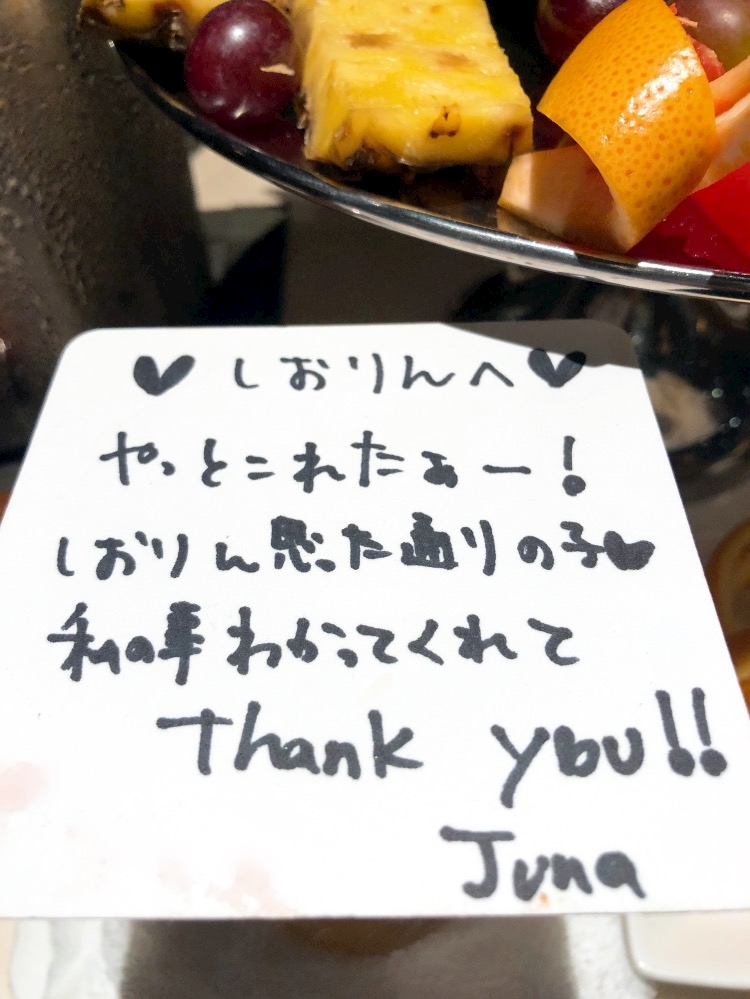 ♥しおりんへ♥
やっとこれたぁー!
しおりん思った通りの子♥
私の事わかってくれて
Thank you!!
Juna